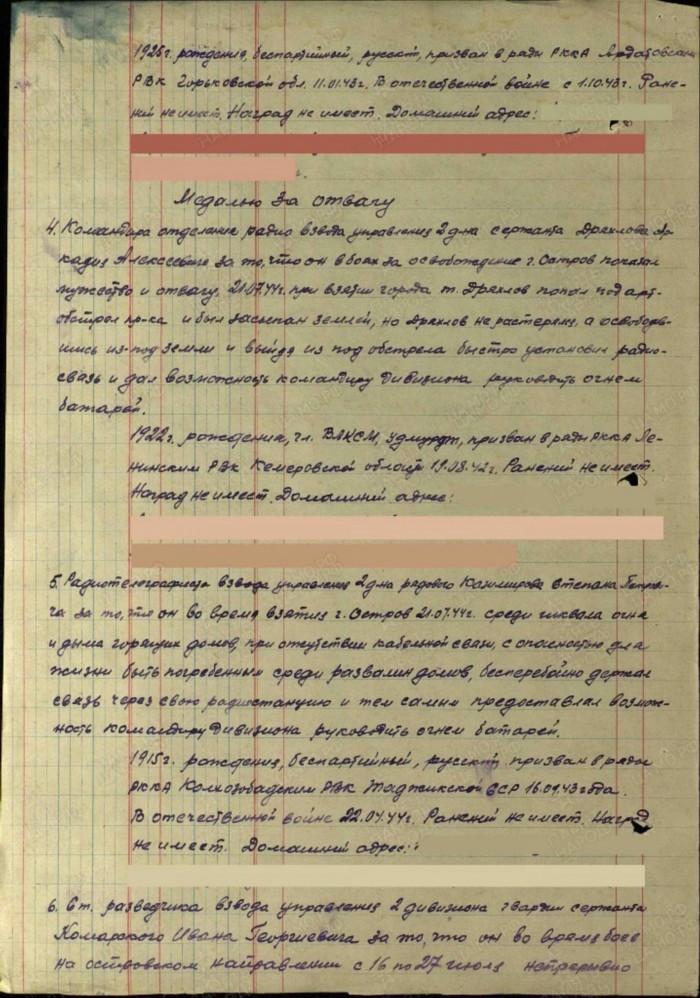 1925г. рождения, беспартийный, русский, призван в ряды РККА Ардатовским
РВК Горьковской обл. 11.01.43г. В отечественной войне с 1.10.43г. Ране-
ний не имеет. Наград не имеет. Домашний адрес:
Медалью За отвагу
4. Командира отделения радио взвода управления 2 д-на сержанта Дряхлова Ар-
кадия Алексеевича за то, что он в боях за освобождение г. Остров показал
мужество и отвагу. 21.07.44г. при взятии города т. Дряхлов попал под арт-
обстрел пр-ка и был засыпан землей, но Дряхлов не растерялся, а освободив-
шись из-под земли и выйдя из под обстрела быстро установил радио-
связь и дал возможность командиру дивизиона руководить огнем
батарей.
1922г. рождения, чл. ВЛКСМ, удмурт, призван в ряды РККА Ле-
нинским РВК Кемеровской области 19.08.42г. Ранений не имеет.
Наград не имеет. Домашний адрес:
5. Радиотелеграфиста взвода управления 2 д-на рядового Казимирова Степана Петрови-
ча за то, что он во время взятия г. Остров 21.07.44г. среди шквала огня
и дыма горящих домов, при отсутствии кабельной связи, с опасностью для
жизни быть погребенным среди развалин домов, бесперебойно держал
связь через свою радиостанцию и тем самым предоставлял возмож-
ность командиру дивизиона руководить огнем батарей.
1915г. рождения, беспартийный, русский призван в ряды
РККА Колхозобадским РВК Таджикской ССР 16.01.43 года.
В отечественной войне 22.04.44г. Ранений не имеет. Наград
не имеет. Домашний адрес:
6. Ст. разведчика взвода управления 2 дивизиона гвардии сержанта
Комарского Ивана Георгиевича за то, что он во время боев
на островском направлении с 16 по 27 июля непрерывно